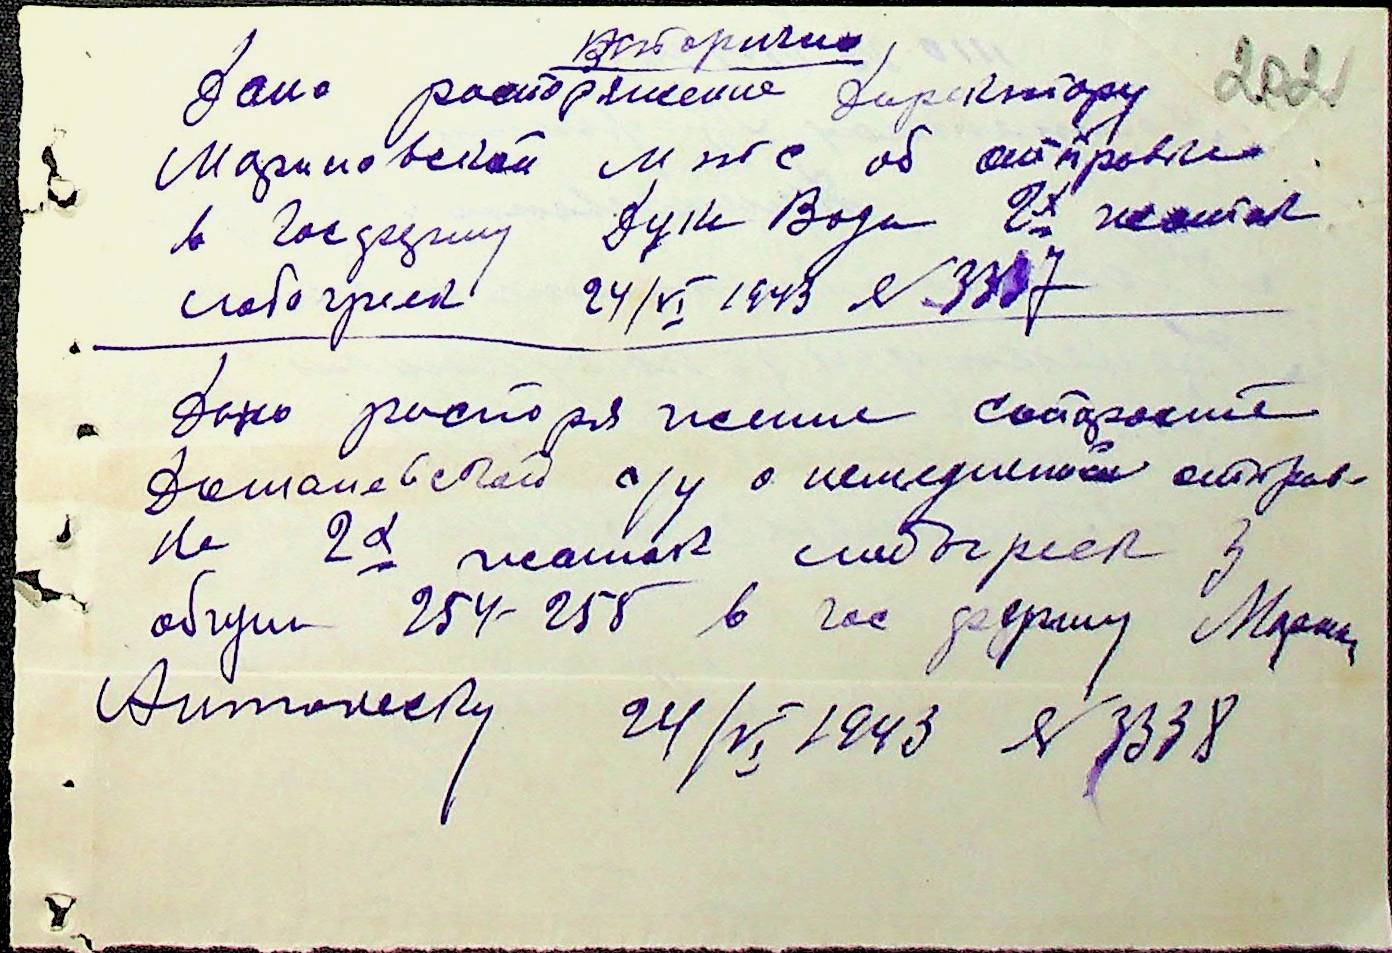 Вторично
202
Дано распоряжение Директору
Мариновской МТС об отправке
в Госферму Дука Вода 2х жаток
лобогреек 24/VI 1943 № 3337
Дано распоряжение Старосте
Доманевской с/у о немедленной отправ-
ке 2х жаток лобогреек з
общин 254-255 в гос ферму
Антонеску 24/VI 1943 № 3338